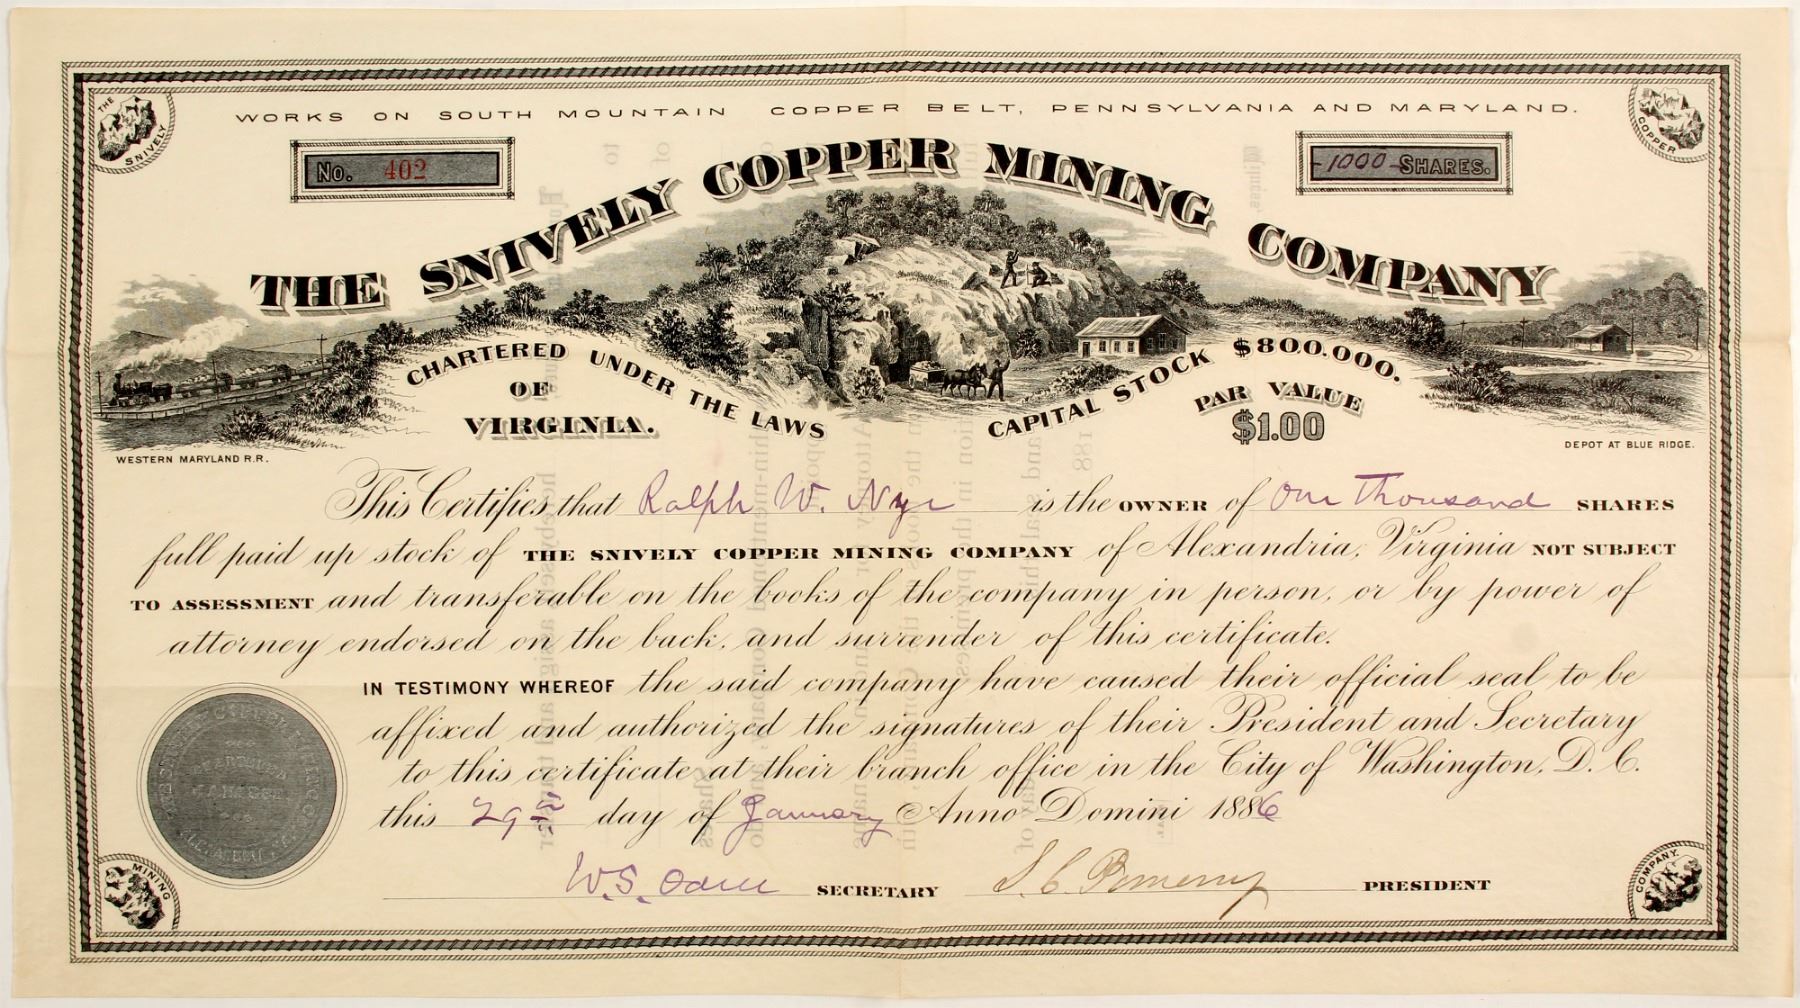 WORKS ON SOUTH MOUNTAIN COPPER BELT, PENNSYLVANIA AND MARYLAND.
THE SNIVELY
COPPER
No. 402
-1000- SHARES.
THE SNIVELY COPPER MINING COMPANY
CHARTERED UNDER THE LAWS
OF
VIRGINIA.
CAPITAL STOCK $800.000.
PAR VALUE
$1.00
WESTERN MARYLAND R.R.
DEPOT AT BLUE RIDGE.
This Certifies that Ralph W. Nye is the OWNER of One Thousand SHARES
full paid up stock of THE SNIVELY COPPER MINING COMPANY of Alexandria, Virginia NOT SUBJECT
TO ASSESSMENT and transferable on the books of the company in person, or by power of
attorney endorsed on the back, and surrender of this certificate.
IN TESTIMONY WHEREOF the said company have caused their official seal to be
affixed and authorized the signatures of their President and Secretary
to this certificate at their branch office in the City of Washington, D.C.
this 29th day of January Anno Domini 1886
W.S. SECRETARY PRESIDENT
MINING
COMPANY.